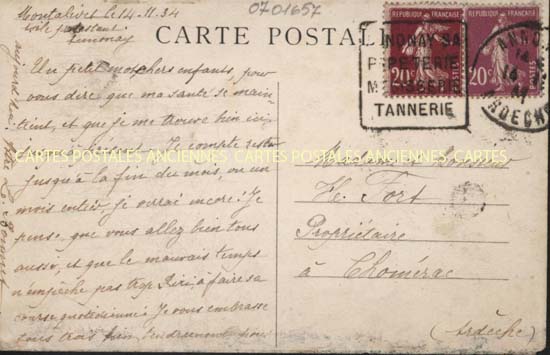 Montalivet le 14.11.34
0701657
CARTE POSTALE
REPUBLIQUE FRANÇAISE
REPUBLIQUE FRANÇAISE
20c
20c
POSTES
NONAY SA
PAPETERIE
MEGISSERIE
TANNERIE
ANNO
14
ARDECHE
Un petit mot chers enfants, pour
vous dire que ma santé se main
tient, et que je me trouve bien ici
Je compte rester
jusqu'à la fin du mois, ou un
mois entier je verrai encore. Je
pense, que vous allez bien tous
aussi, et que le mauvais temps
n'empêche pas à faire sa
course quotidienne. Je vous embrasse
tous trois bien tendrement
CARTES POSTALES ANCIENNES CARTES POSTALES ANCIENNES CARTES
H. Fort
Propriétaire
à Chomérac
(Ardèche)